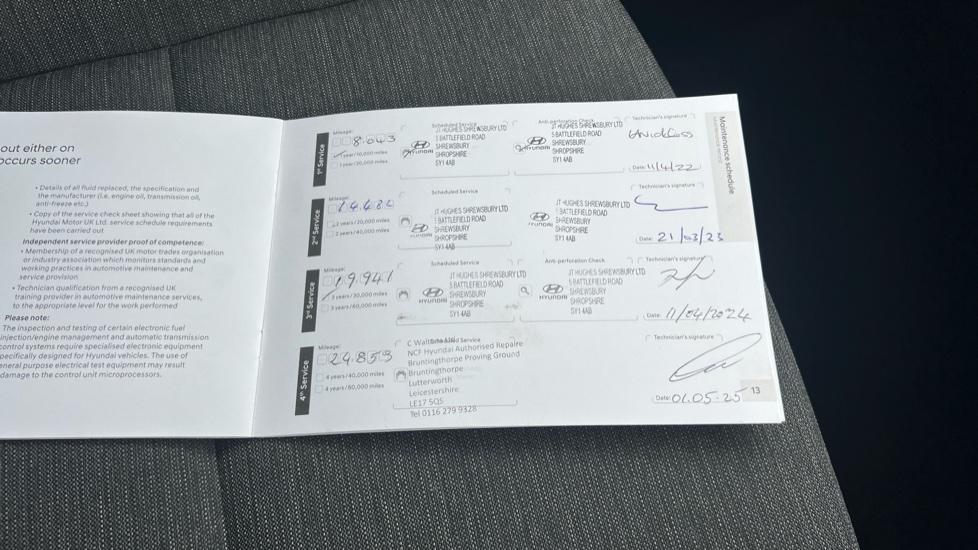 out either on
occurs sooner
• Details of all fluid replaced, the specification and
the manufacturer (i.e. engine oil, transmission oil,
anti-freeze etc.)
• Copy of the service check sheet showing that all of the
Hyundai Motor UK Ltd. service schedule requirements
have been carried out
Independent service provider proof of competence:
• Membership of a recognised UK motor trades organisation
or industry association which monitors standards and
working practices in automotive maintenance and
service provision
• Technician qualification from a recognised UK
training provider in automotive maintenance services,
to the appropriate level for the work performed
Please note:
The inspection and testing of certain electronic fuel
injection/engine management and automatic transmission
control systems require specialised electronic equipment
specifically designed for Hyundai vehicles. The use of
general purpose electrical test equipment may result
damage to the control unit microprocessors.
Maintenance schedule
1st Service
Mileage:
8.043
1 year/10,000 miles
1 year/20,000 miles
Scheduled Service
HYUNDAI
JT HUGHES SHREWSBURY LTD
5 BATTLEFIELD ROAD
SHREWSBURY
SHROPSHIRE
SY1 4AB
Anti-perforation Check
HYUNDAI
JT HUGHES SHREWSBURY LTD
5 BATTLEFIELD ROAD
SHREWSBURY
SHROPSHIRE
SY1 4AB
Technician's signature
Date: 11/4/22
2nd Service
Mileage:
2 years/20,000 miles
2 years/40,000 miles
Scheduled Service
HYUNDAI
JT HUGHES SHREWSBURY LTD
5 BATTLEFIELD ROAD
SHREWSBURY
SHROPSHIRE
SY1 4AB
HYUNDAI
JT HUGHES SHREWSBURY LTD
5 BATTLEFIELD ROAD
SHREWSBURY
SHROPSHIRE
SY1 4AB
Technician's signature
Date: 21/03/23
3rd Service
Mileage:
19,941
3 years/30,000 miles
3 years/60,000 miles
Scheduled Service
HYUNDAI
JT HUGHES SHREWSBURY LTD
5 BATTLEFIELD ROAD
SHREWSBURY
SHROPSHIRE
SY1 4AB
Anti-perforation Check
HYUNDAI
JT HUGHES SHREWSBURY LTD
5 BATTLEFIELD ROAD
SHREWSBURY
SHROPSHIRE
SY1 4AB
Technician's signature
Date: 11/04/2024
4th Service
Mileage:
24,853
4 years/40,000 miles
4 years/80,000 miles
Scheduled Service
NCF Hyundai Authorised Repaire
Bruntingthorpe Proving Ground
Bruntingthorpe
Lutterworth
Leicestershire
LE17 5QS
Tel 0116 279 9328
Technician's signature
Date: 01.05.25
13